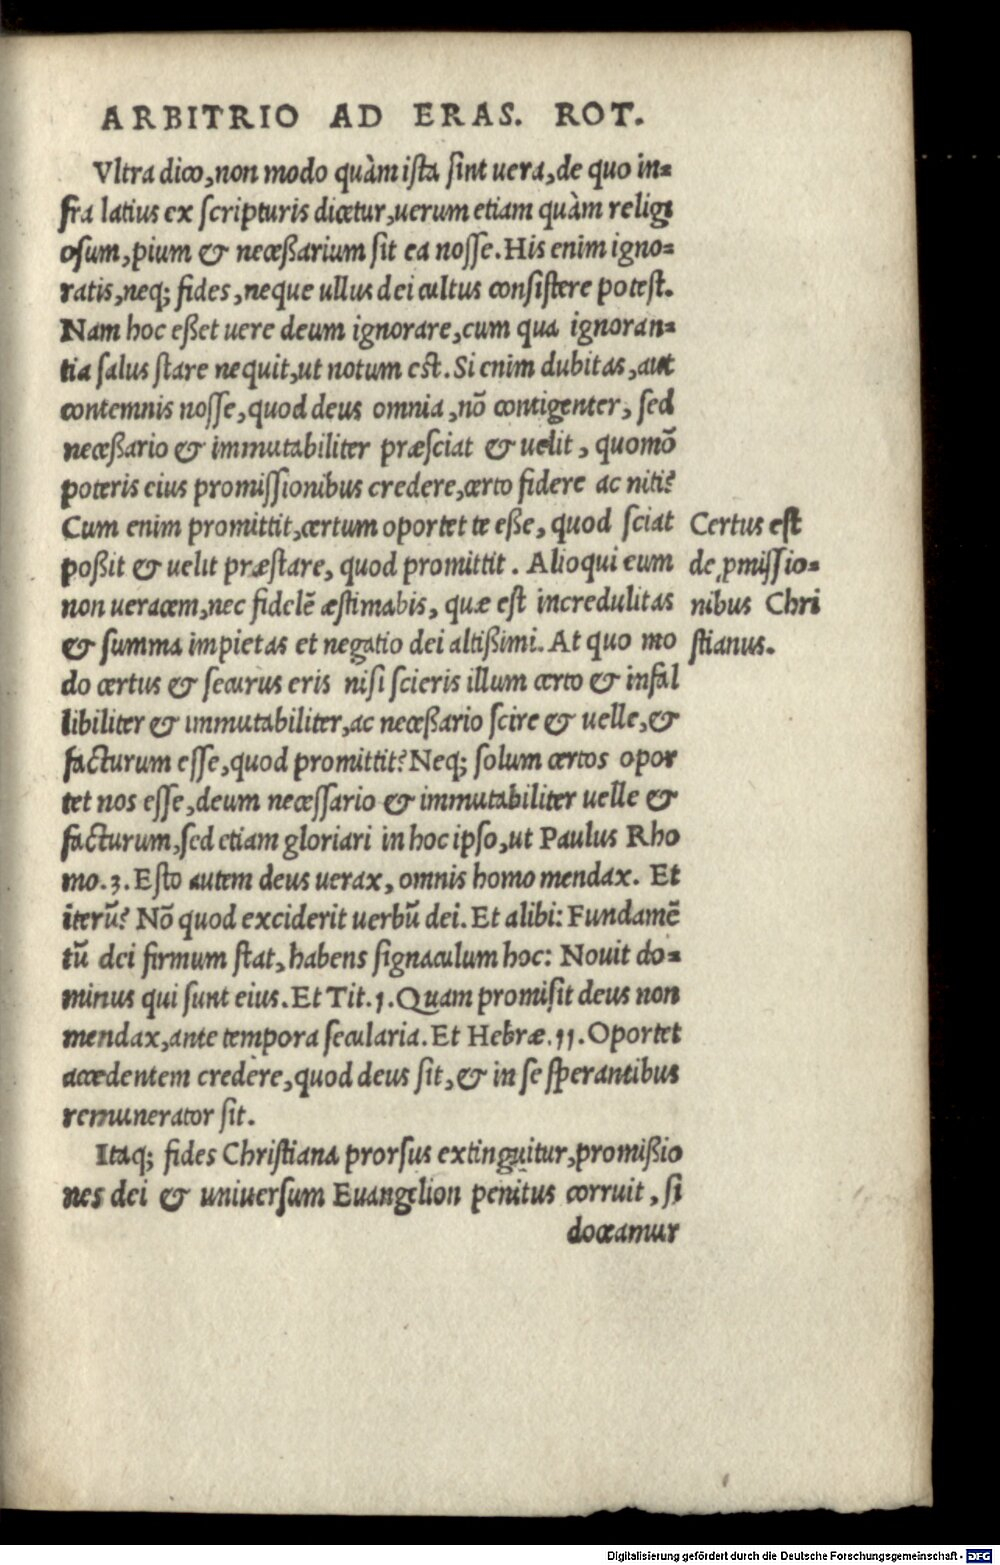 ARBITRIO AD ERAS. ROT.
Vltra dico, non modo quàm ista sint uera, de quo in=
fra latius ex scripturis dicetur, uerum etiam quàm religi
osum, pium & neceßarium sit ea nosse. His enim igno=
ratis, neq; fides, neque ullus dei cultus consistere potest.
Nam hoc eßet uere deum ignorare, cum qua ignoran=
tia salus stare nequit, ut notum est. Si enim dubitas, aut
contemnis nosse, quod deus omnia, nō contigenter, sed
neceßario & immutabiliter præsciat & uelit, quomō
poteris eius promissionibus credere, certo fidere ac niti?
Cum enim promittit, certum oportet te eße, quod sciat
poßit & uelit præstare, quod promittit. Alioqui eum
non ueracem, nec fidelē æstimabis, quæ est incredulitas
& summa impietas et negatio dei altißimi. At quo mo
do certus & securus eris nisi scieris illum certo & infal
libiliter & immutabiliter, ac neceßario scire & uelle, &
facturum esse, quod promittit? Neq; solum certos opor
tet nos esse, deum necessario & immutabiliter uelle &
facturum, sed etiam gloriari in hoc ipso, ut Paulus Rho
mo. 3. Esto autem deus uerax, omnis homo mendax. Et
iterū? Nō quod exciderit uerbū dei. Et alibi: Fundamē
tū dei firmum stat, habens signaculum hoc: Nouit do=
minus qui sunt eius. Et Tit. 1. Quam promisit deus non
mendax, ante tempora secularia. Et Hebræ. 11. Oportet
accedentem credere, quod deus sit, & in se sperantibus
remunerator sit.
Itaq; fides Christiana prorsus extinguitur, promißio
nes dei & uniuersum Euangelion penitus corruit, si
doceamur
Certus est
de ꝓmissio=
nibus Chri
stianus.
Digitalisierung gefördert durch die Deutsche Forschungsgemeinschaft - DFG